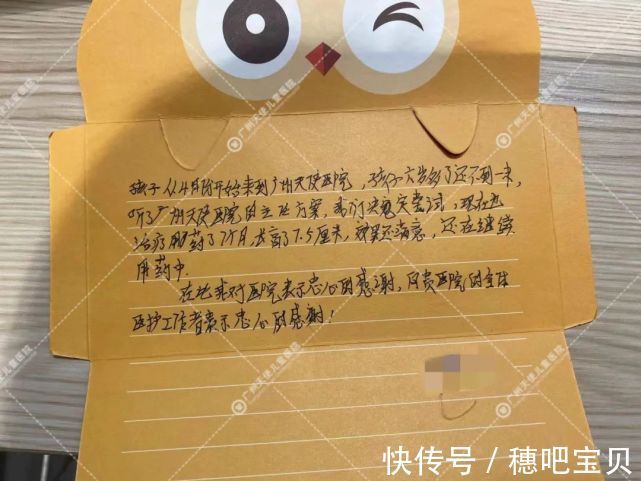 孩子从4月份开始来到广州天使医院，孩子六岁多了还不到一米，
听了广州天使医院的方案，我们决定尝试，现在
治疗用药了7个月，长高了7.5厘米，效果还满意，还在继续
用药中。
在此非对医院表示忠心的感谢，向贵医院的全体
医护工作者表示忠心的感谢！
广州天使儿童医院
快传号／穗吧宝贝